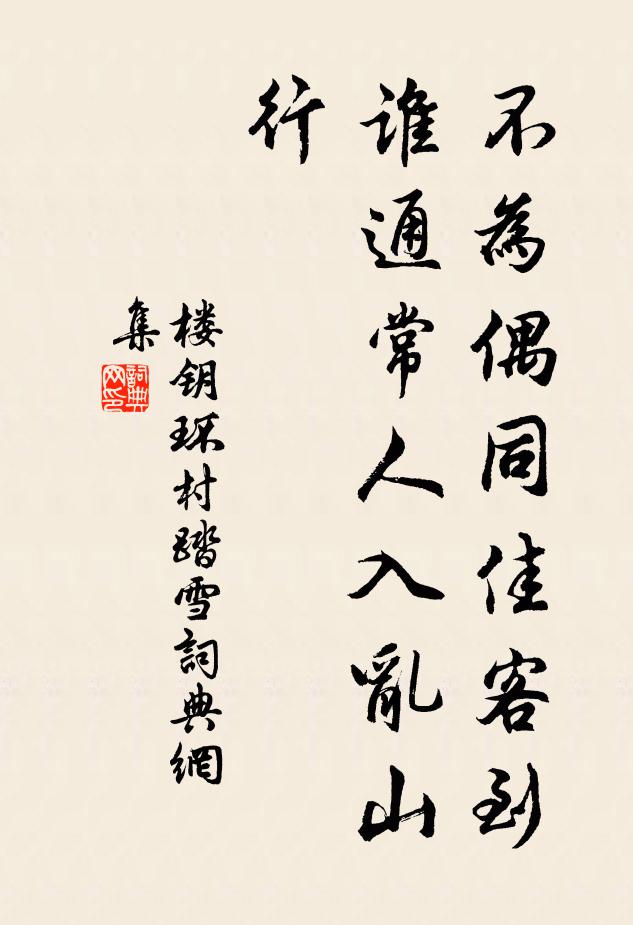 不為偶同佳客到
誰通常人入亂山
行
楼钥环村踏雪詞典網
集
詞典
网印